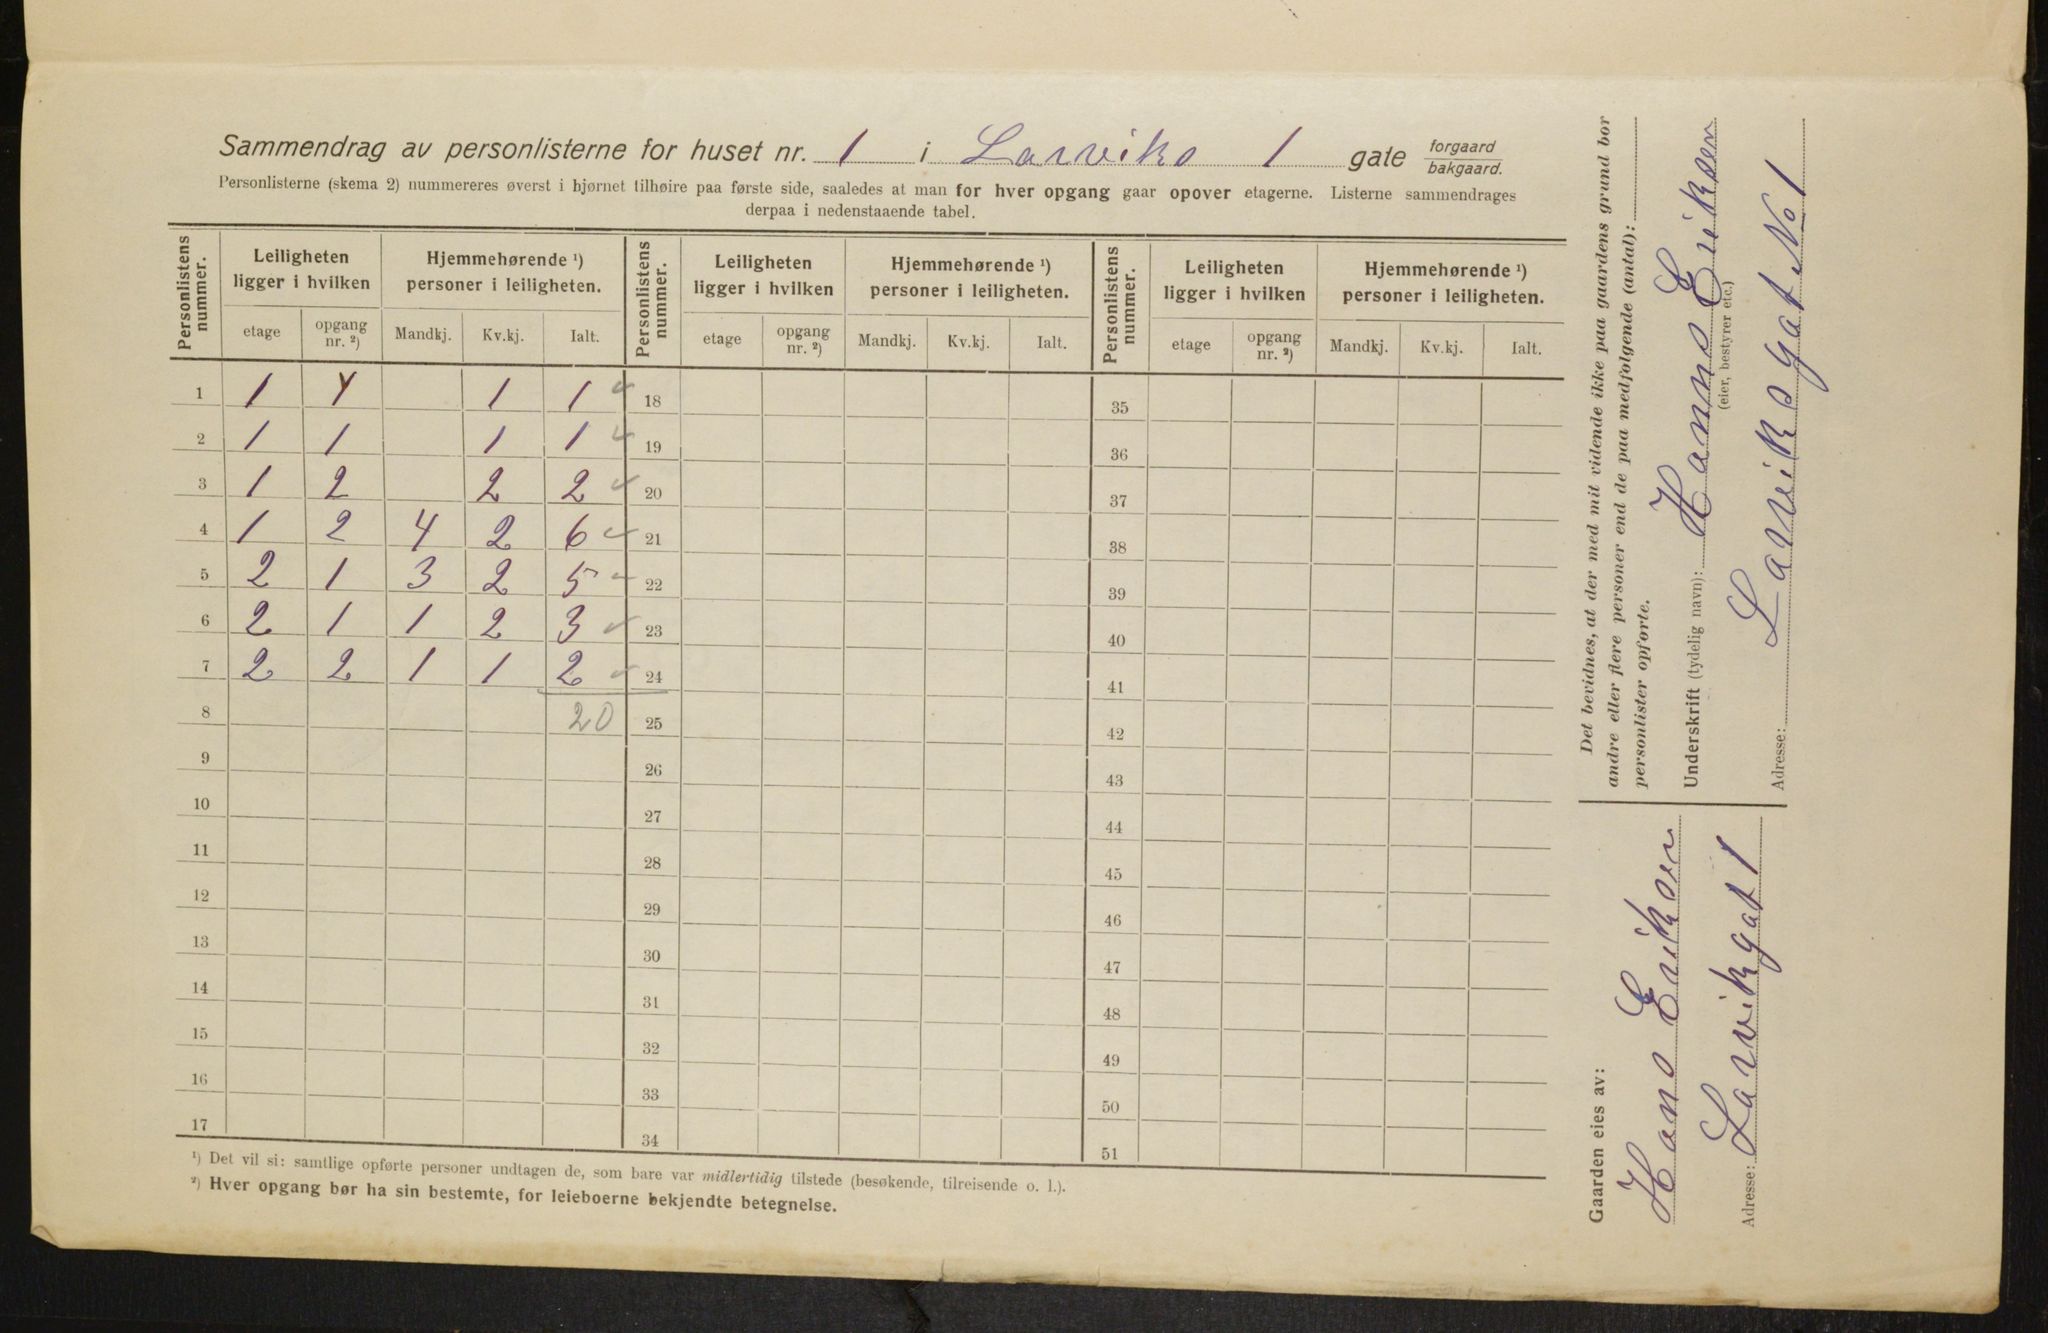 Sammendrag av personlisterne for huset nr. 1 i Larviks 1 gate forgaard bakgaard.
Personlisterne (skema 2) nummereres øverst i hjørnet tilhøire paa første side, saaledes at man for hver opgang gaar opover etagerne. Listerne sammendrages
derpaa i nedenstaaende tabel.
Personlistens nummer. Leiligheten ligger i hvilken Hjemmehørende ¹) personer i leiligheten. Personlistens nummer. Leiligheten ligger i hvilken Hjemmehørende ¹) personer i leiligheten. Personlistens nummer. Leiligheten ligger i hvilken Hjemmehørende ¹) personer i leiligheten.
etage opgang nr. ²) Mandkj. Kv.kj. Ialt. etage opgang nr. ²) Mandkj. Kv.kj. Ialt. etage opgang nr. ²) Mandkj. Kv.kj. Ialt.
1 1 1 1 1 ✓ 18 35
2 1 1 1 1 ✓ 19 36
3 1 2 2 2 ✓ 20 37
4 1 2 4 2 6 ✓ 21 38
5 2 1 3 2 5 ✓ 22 39
6 2 1 1 2 3 ✓ 23 40
7 2 2 1 1 2 ✓ 24 41
8 20 25 42
9 26 43
10 27 44
11 28 45
12 29 46
13 30 47
14 31 48
15 32 49
16 33 50
17 34 51
¹) Det vil si: samtlige opførte personer undtagen de, som bare var midlertidig tilstede (besøkende, tilreisende o. l.).
²) Hver opgang bør ha sin bestemte, for leieboerne bekjendte betegnelse.
Det bevidnes, at der med mit vidende ikke paa gaardens grund bor
andre eller flere personer end de paa medfølgende (antal):
personlister opførte.
Underskrift (tydelig navn): Hanns Eriksen
(eier, bestyrer etc.)
Adresse: Larviksgat No 1
Gaarden eies av:
Hans Eriksen
Adresse: Larvikgat 1